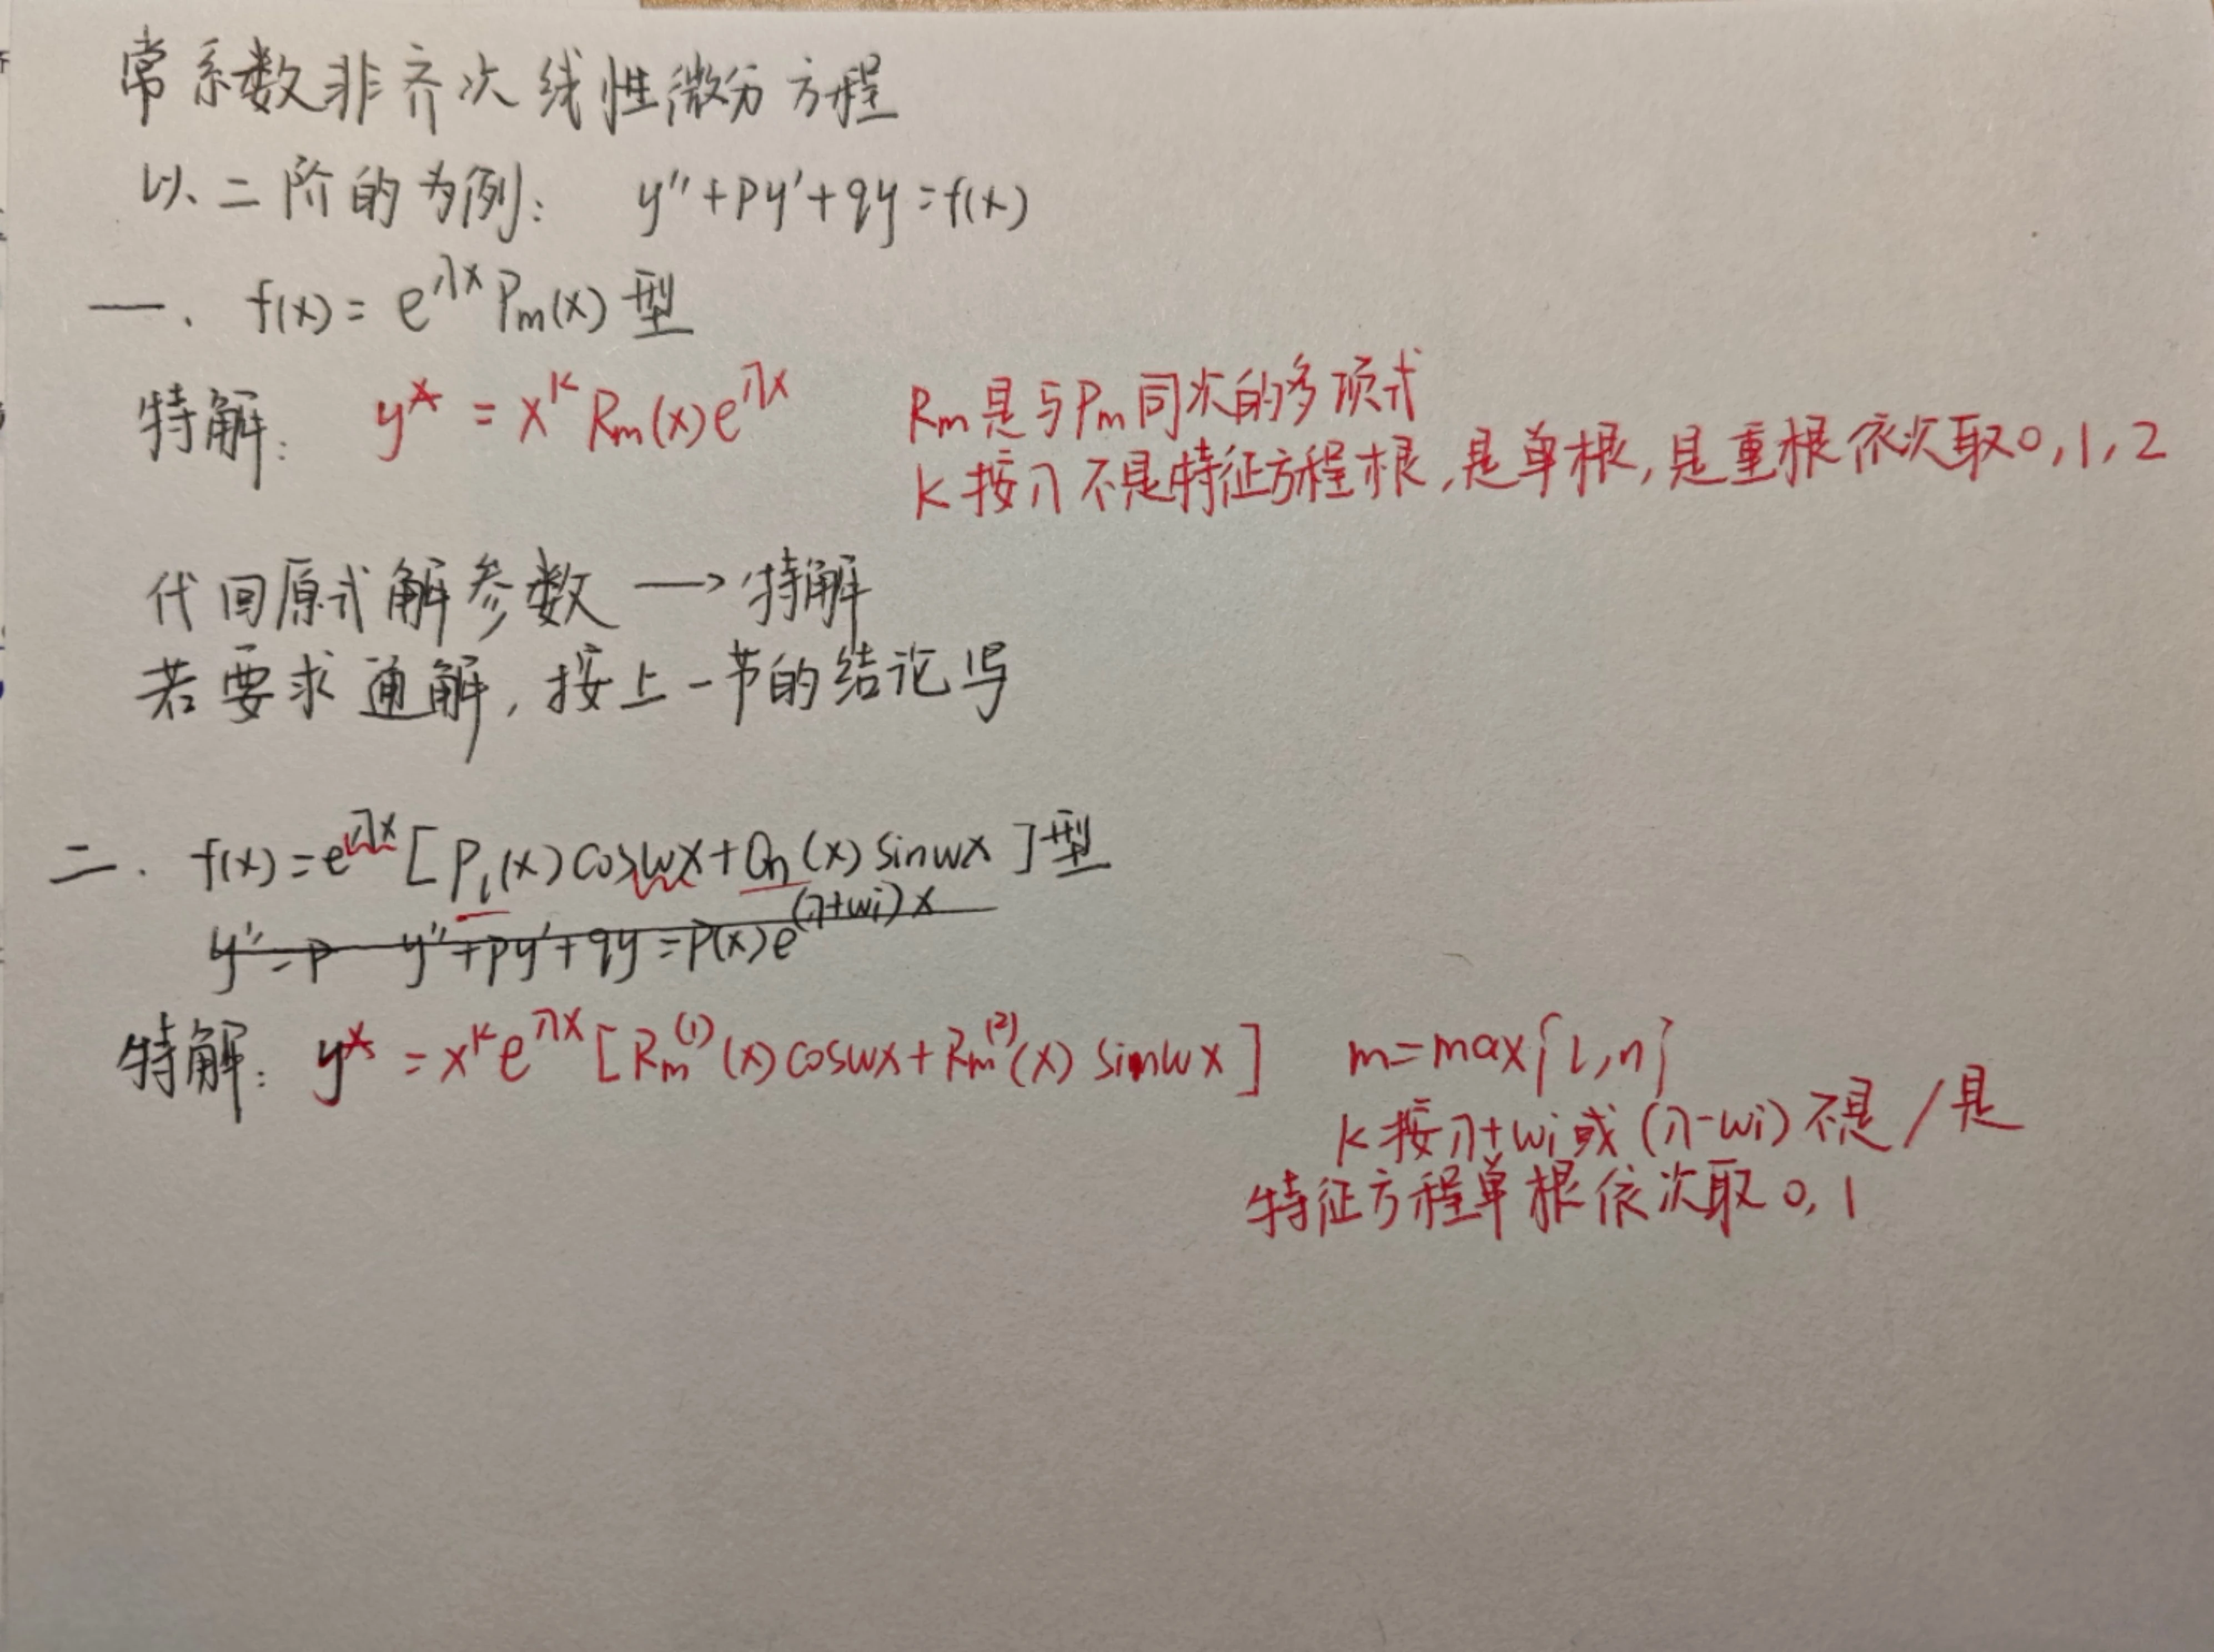 常系数非齐次线性微分方程
以二阶的为例: y''+py'+qy=f(x)
一. f(x)=e^{λx}P_m(x)型
特解: y*=x^k R_m(x)e^{λx}
R_m是与P_m同次的多项式
k按λ不是特征方程根,是单根,是重根依次取0,1,2
代回原式解参数→特解
若要求通解,按上一节的结论写
二. f(x)=e^{λx}[P_l(x)cosωx+Q_n(x)sinωx]型
y''=p y''+py'+qy=P(x)e^{(λ+ωi)x}
特解: y*=x^k e^{λx}[R_m^{(1)}(x)cosωx+R_m^{(2)}(x)sinωx]
m=max{l,n}
k按λ+ωi或(λ-ωi)不是/是
特征方程单根依次取0,1